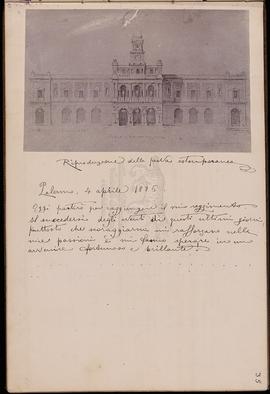 Riproduzione della prova estemporanea
Palermo, 4 aprile 1895
Oggi partirò per raggiungere il mio reggimento
il succedersi degli eventi di questi ultimi giorni
piuttosto che scoraggiarmi mi rafforzano nelle
mie passioni e mi fanno sperare in un
avvenire fortunoso e brillante.
35